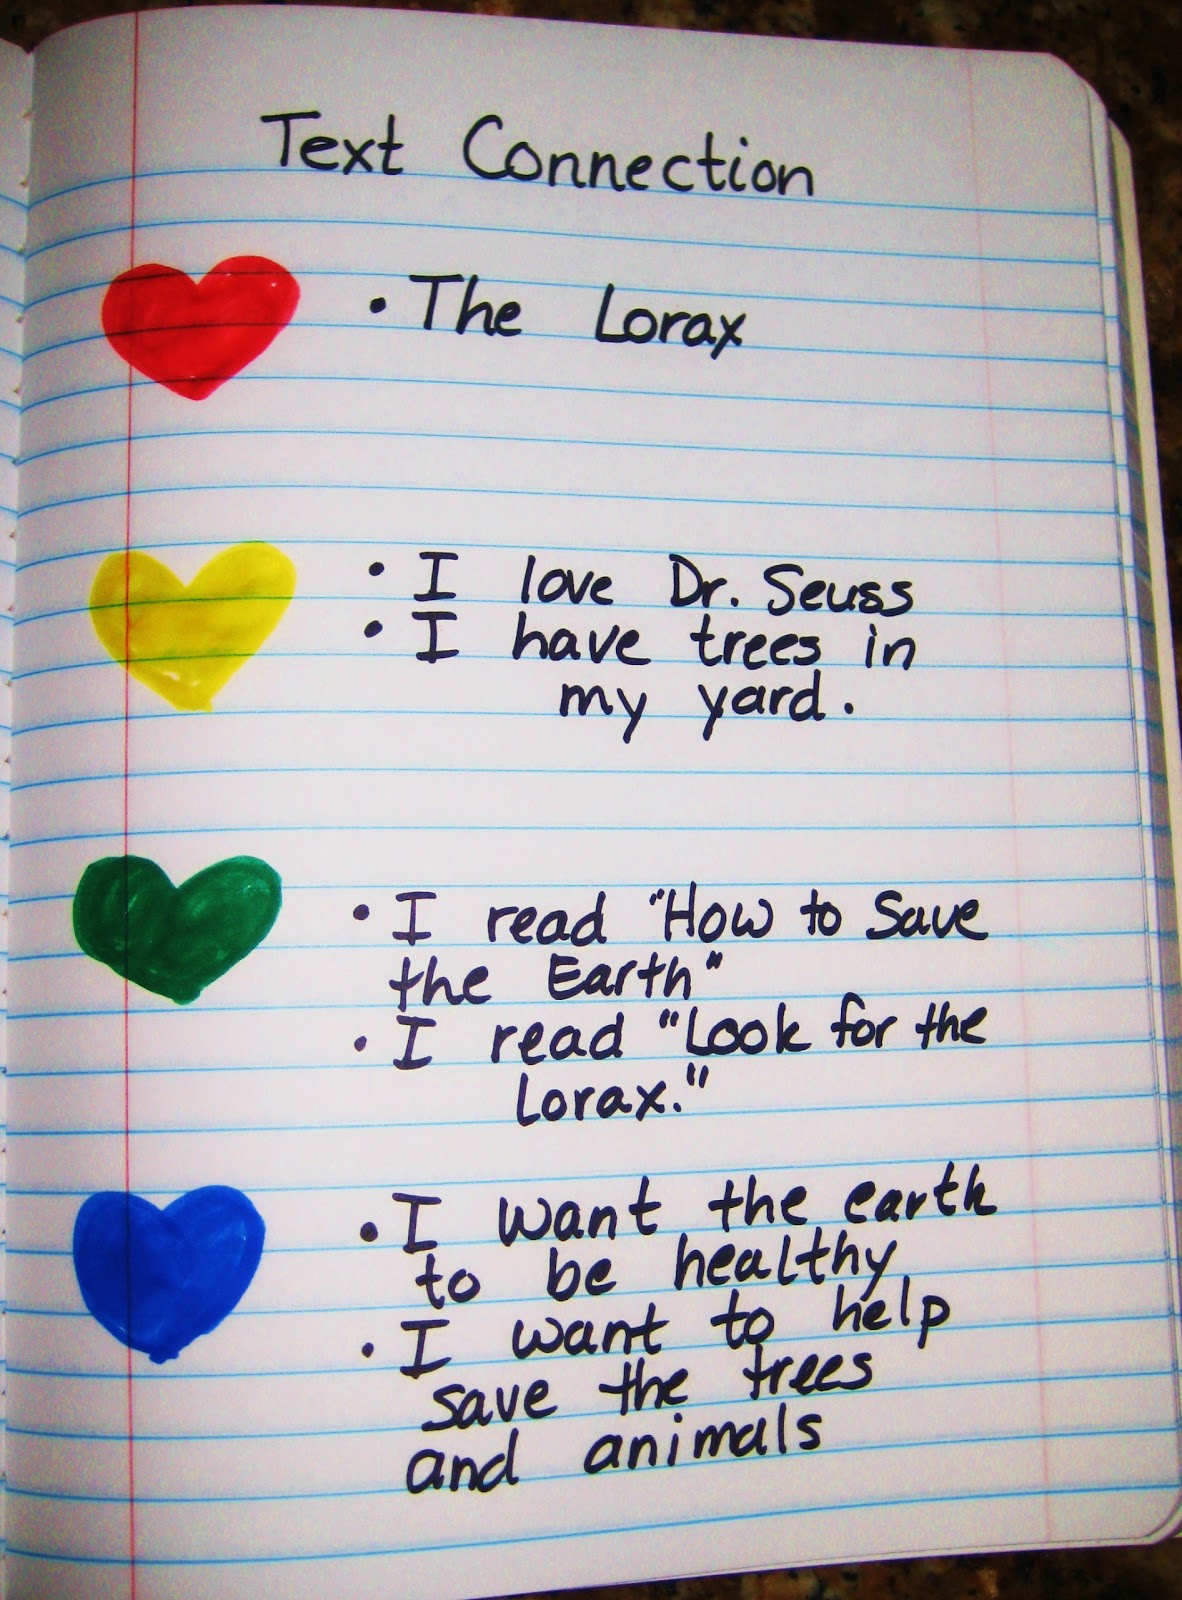 Text Connection
• The Lorax
• I love Dr. Seuss
• I have trees in
my yard.
• I read "How to Save
the Earth"
• I read "Look for the
Lorax."
• I want the earth
to be healthy
• I want to help
save the trees
and animals